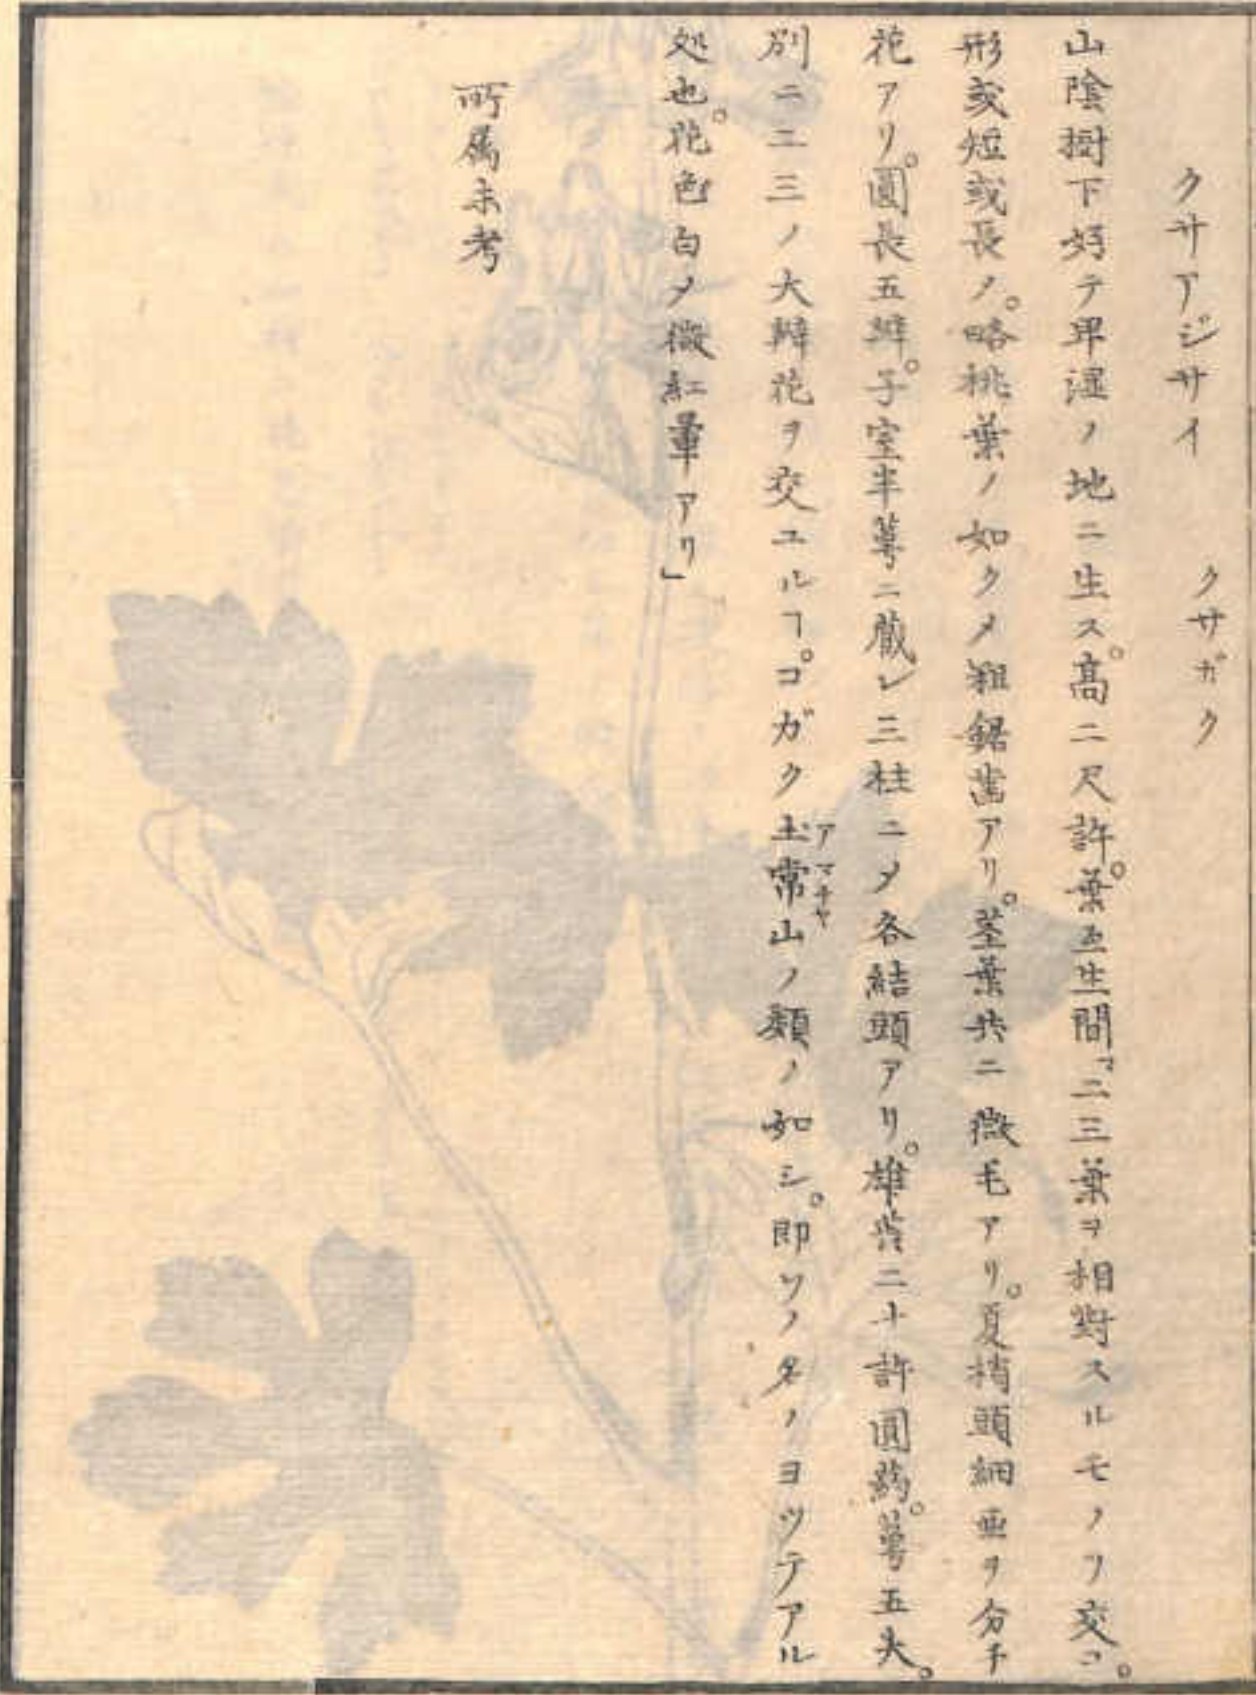 クサアジサイ　クサガク
山陰樹下好テ卑湿ノ地ニ生ス。高二尺許。葉互生間「二三葉ヲ相對スルモノヲ交ユ。
形或短或長ノ。略桃葉ノ如クメ粗鋸齒アリ。莖葉共ニ微毛アリ。夏梢頭細亜ヲ分チ
花アリ。圓長五瓣。子室半萼ニ蔵レ三柱ニメ各結頭アリ。雄蕋二十許圓葯。萼五失。
別ニ二三ノ大瓣花ヲ交ユルヿ。コガク土常山アマチヤノ類ノ如シ。即ソノ名ノヨツテアル
処也。花色白メ微紅暈アリ」
所属未考